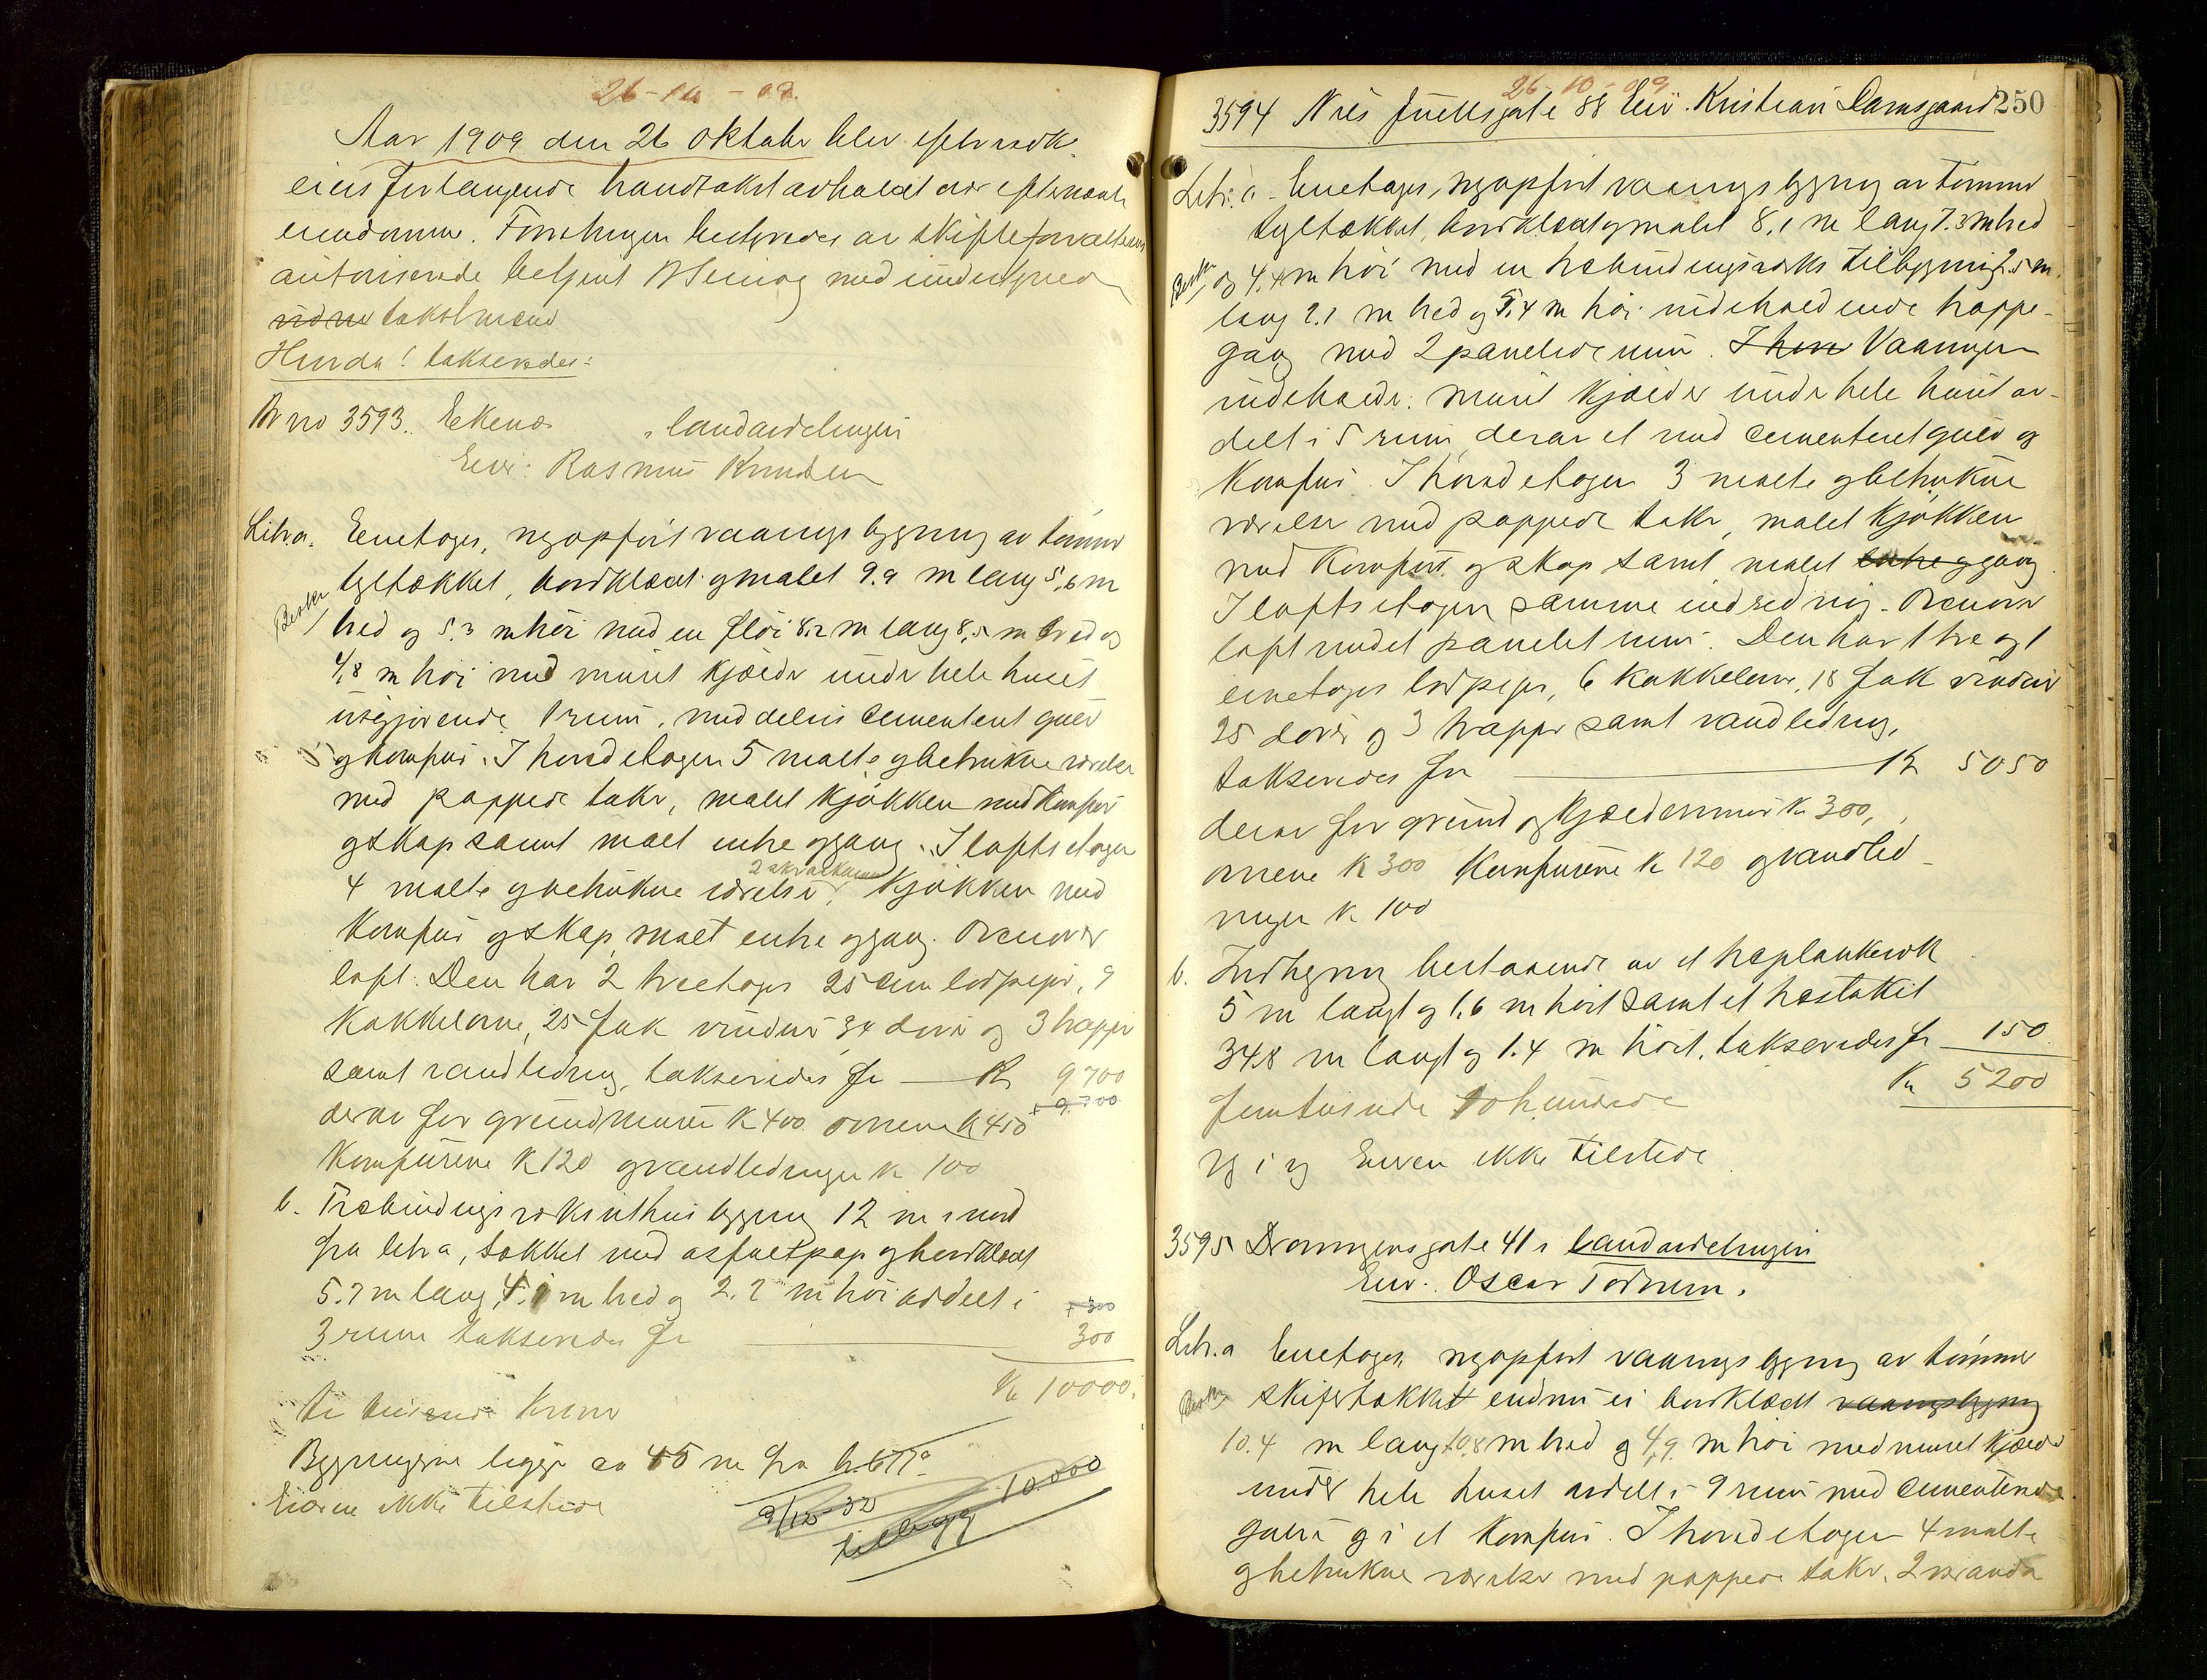 26-10-09.
Aar 1909 den 26 Oktober blev efter vedk.
eiers forlangende brandtakst avholdt over efternævnte
eiendomme. Forretningen bestyredes av skifteforvalterens
autoriserede betjent med undertegnede
takstmænd
Herda! takseredes:
Br no 3593. Ekenæs i landavdelingen
Eier: Rasmus Knudsen
Litr. a. Eenetages, nyopført vaaningsbygning av tømmer
tegltækket, bordklædt og malet 9.9 m lang 5,6 m
Besktr bred og 5.3 m høi med en fløi 8.2 m lang 8,5 m bred og
4,8 m høi med muret kjælder under hele huset
utgjørende 1 rum, med delvis cementeret gulv
og komfur. I hovedetagen 5 malte og betrukne værelser
med pappede taker, malet kjøkken med komfur
og skap samt malt entre og gang. I loftsetagen
4 malte og betrukne værelser, 2 skraakamre kjøkken med
komfur og skap, malt entre og gang. Ovenover
loft. Den har 2 treetages 25 cm lodpiper, 9
kakkelovne, 25 fak vinduer 34 dører og 3 trapper
samt vandledning, takseredes for — Kr 9700
derav for grundmuren K 400 ovnene K 450
komfurene K 120 og vandledningen K 100
b. Træbindingsverks uthusbygning 12 m i nord
fra litr a, tækket med asfaltpap og bordklædt
5.7 m lang, 4.1 m bred og 2.2 m høi avdelt i
3 rum takseredes for 300
Kr 10000.
ti tusinde Kroner
Bygningerne ligger ca 45 m fra br. 677a
Eieren ikke tilstede
9/12-32 10.000
tillegg
26-10-09
250
3594 Niels Juellsgate 88 Eier. Kristian Damsgaard
Litr. a. Eenetages, nyopført vaaningsbygning av tømmer
tegltækket, bordklædt og malet 8.1 m lang 7.3 m bred
Besktr og 4.4 m høi med en træbindingsverks tilbygning 2.5 m
lang 2.1 m bred og 5.4 m høi indeholdende trappe-
gang med 2 panelede rum. I hove Vaaningen
indeholder: muret kjælder under hele huset av-
delt i 5 rum, derav et med cementeret gulv og
komfur. I hovedetagen 3 malte og betrukne
værelser med pappede taker, malet kjøkken
med komfur og skap samt malet entre og gang.
I loftsetagen samme indredning. Ovenover
loft med et panelet rum. Den har 1 tre og 1
eenetages lodpiper, 6 kakkelovne, 18 fak vinduer
25 dører og 3 trapper samt vandledning,
takseredes for — Kr 5050
derav for grund og kjældermur Kr 300,
ovnene K 300 komfurene K 120 og vandled-
ningen K 100
b. Indhegning bestaaende av et træplankeverk
5 m langt og 1,6 m høit samt et træstakit
34,8 m langt og 1.4 m høit, takseredes for 150.
Kr 5200
femtusinde tohundrede
Eieren ikke tilstede.
3595 Dronningensgate 41 i landavdelingen
Eier. Oscar Torsrum.
Litr. a Eenetages, nyopført vaaningsbygning av tømmer
Besktr skifertækket endnu ei bordklædt vaaningsbygning
10.4 m lang 10,8 m bred og 4,9 m høi med muret kjælder
under hele huset avdelt i 9 rum med cementerede
gulve og i et komfur. I hovedetagen 4 malte
og betrukne værelser med pappede taker, 2 veranda